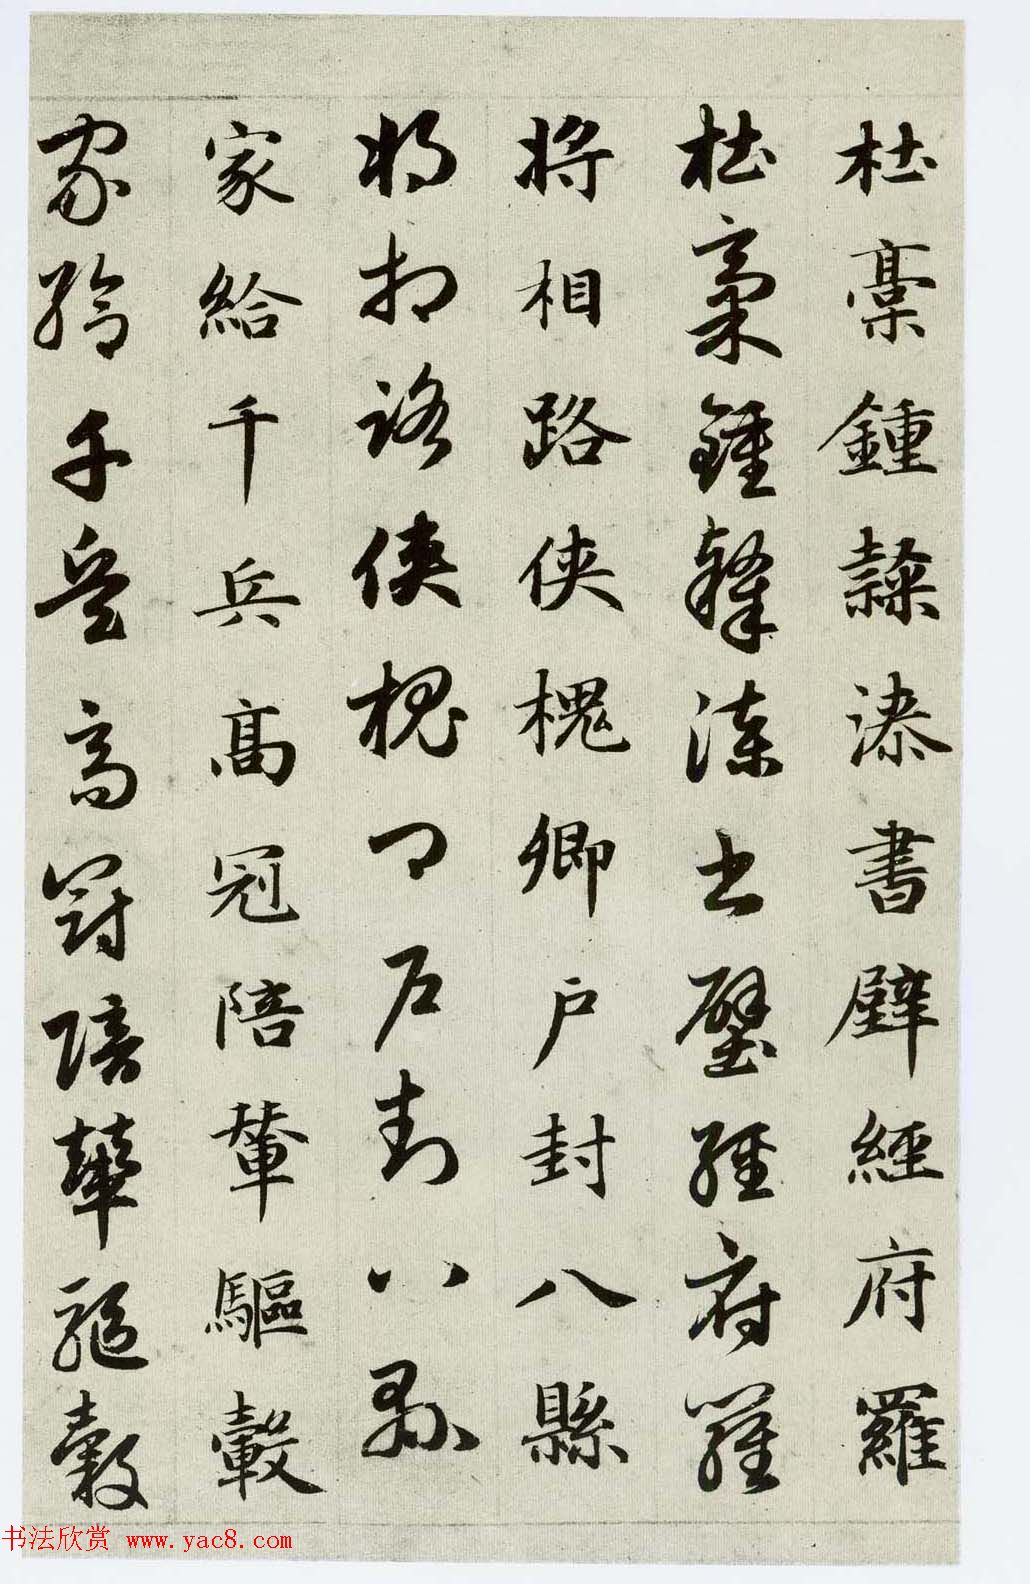 杜稾鍾隸漆書壁經府羅
杜稾鍾隸漆書壁經府羅
將相路俠槐卿戶封八縣
將相路俠槐卿戶封八縣
家給千兵高冠陪輦驅轂
家給千兵高冠陪輦驅轂
书法欣赏 www.yac8.com